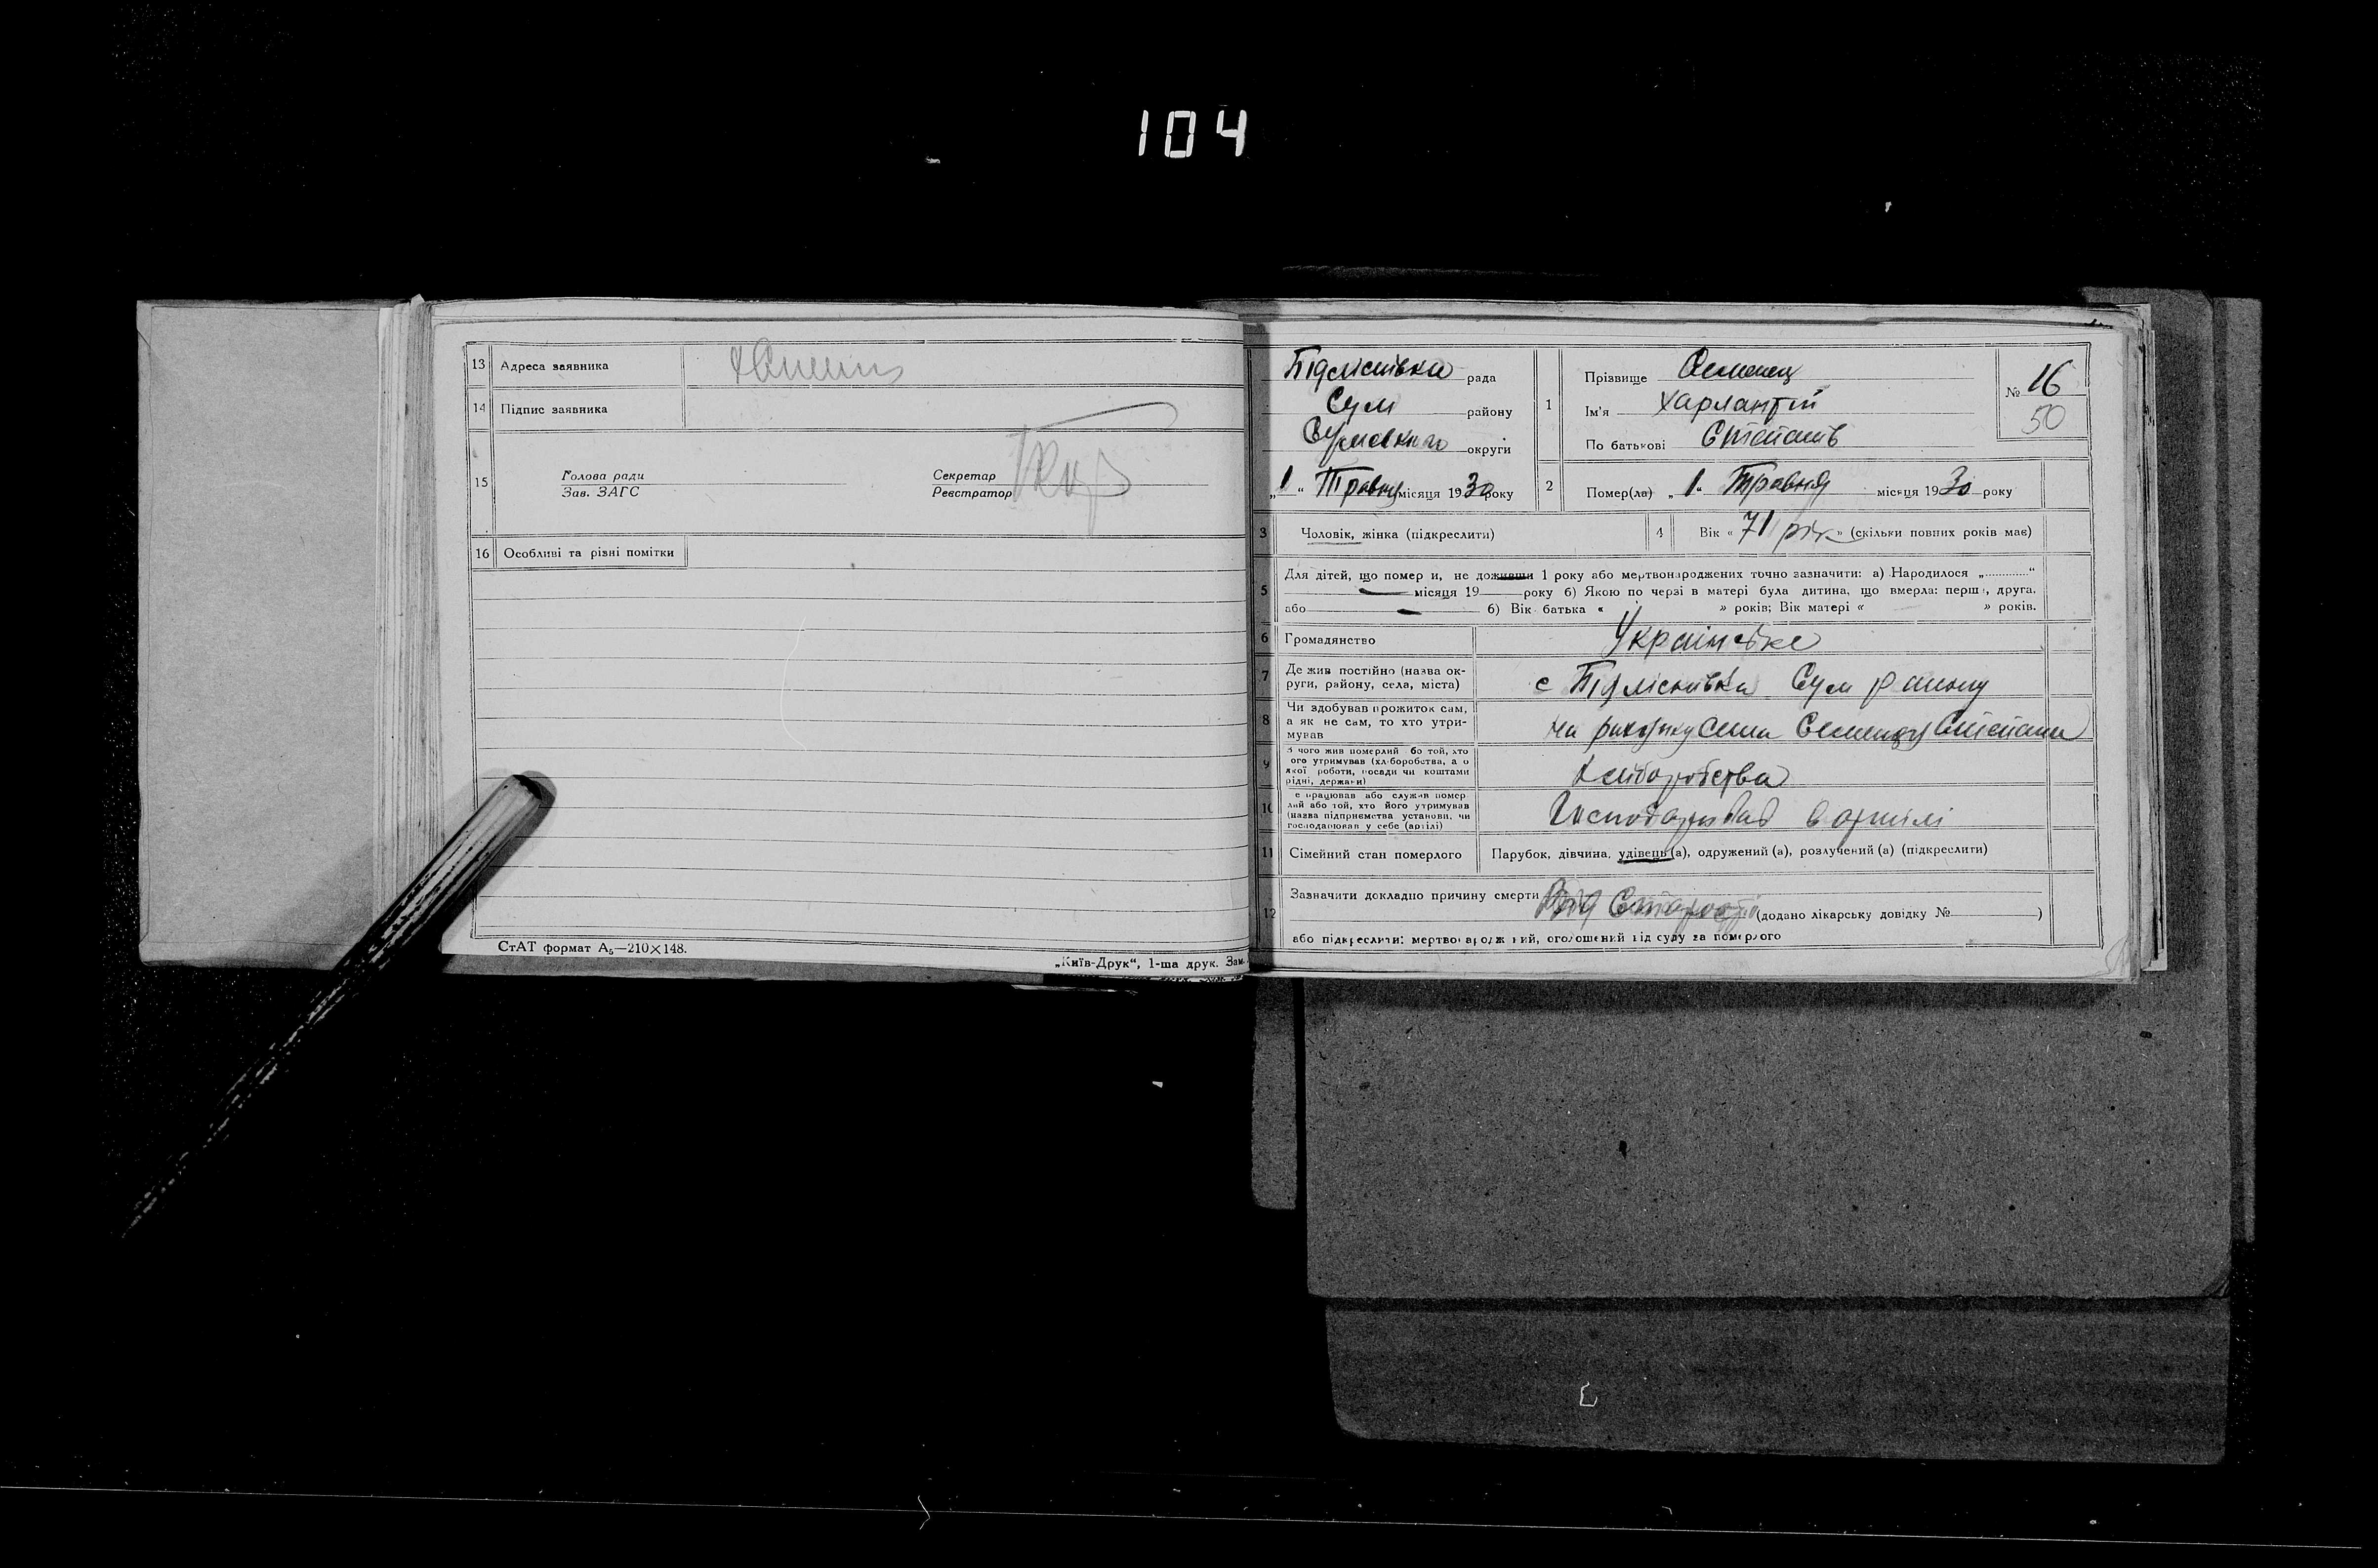 104
13 Адреса заявника
14 Підпис заявника
15 Голова ради
Зав. ЗАГС
Секретар
Реєстратор
16 Особливі та різні помітки
СтАТ формат А₅—210×148.
„Київ-Друк“, 1-ша друк. Зам.
Підліснівка рада
Сум району
Сумського округи
„1“ Травня місяця 1930 року
1 Прізвище Семенец
Ім'я Харлантій
По батькові Степанів
№ 16
50
2 Помер(ла) „1“ Травня місяця 1930 року
3 Чоловік, жінка (підкреслити)
4 Вік «71 рік» (скільки повних років має)
5 Для дітей, що померли, не доживши 1 року або мертвонароджених точно зазначити: а) Народилося „............“
місяця 19 року б) Якою по черзі в матері була дитина, що вмерла: перша, друга,
або б) Вік батька « » років; Вік матері « » років.
6 Громадянство Українське
7 Де жив постійно (назва ок-
руги, району, села, міста) с Підліснівка Сум району
8 Чи здобував прожиток сам,
а як не сам, то хто утри-
мував на рахунку сина Семенця Степана
9 З чого жив померлий або той, хто
його утримував (хліборобства, а о
якої роботи, посади чи коштами
рідні, держави) Хліборобства
10 Де працював або служив помер
лий або той, хто його утримував
(назва підприємства установи, чи
господарював у себе (артілі) Господарював в артілі
11 Сімейний стан померлого Парубок, дівчина, удівець(а), одружений(а), розлучений(а) (підкреслити)
12 Зазначити докладно причину смерти Від Старости
(додано лікарську довідку № )
або підкреслити: мертвонароджений, оголошений від суду за померлого